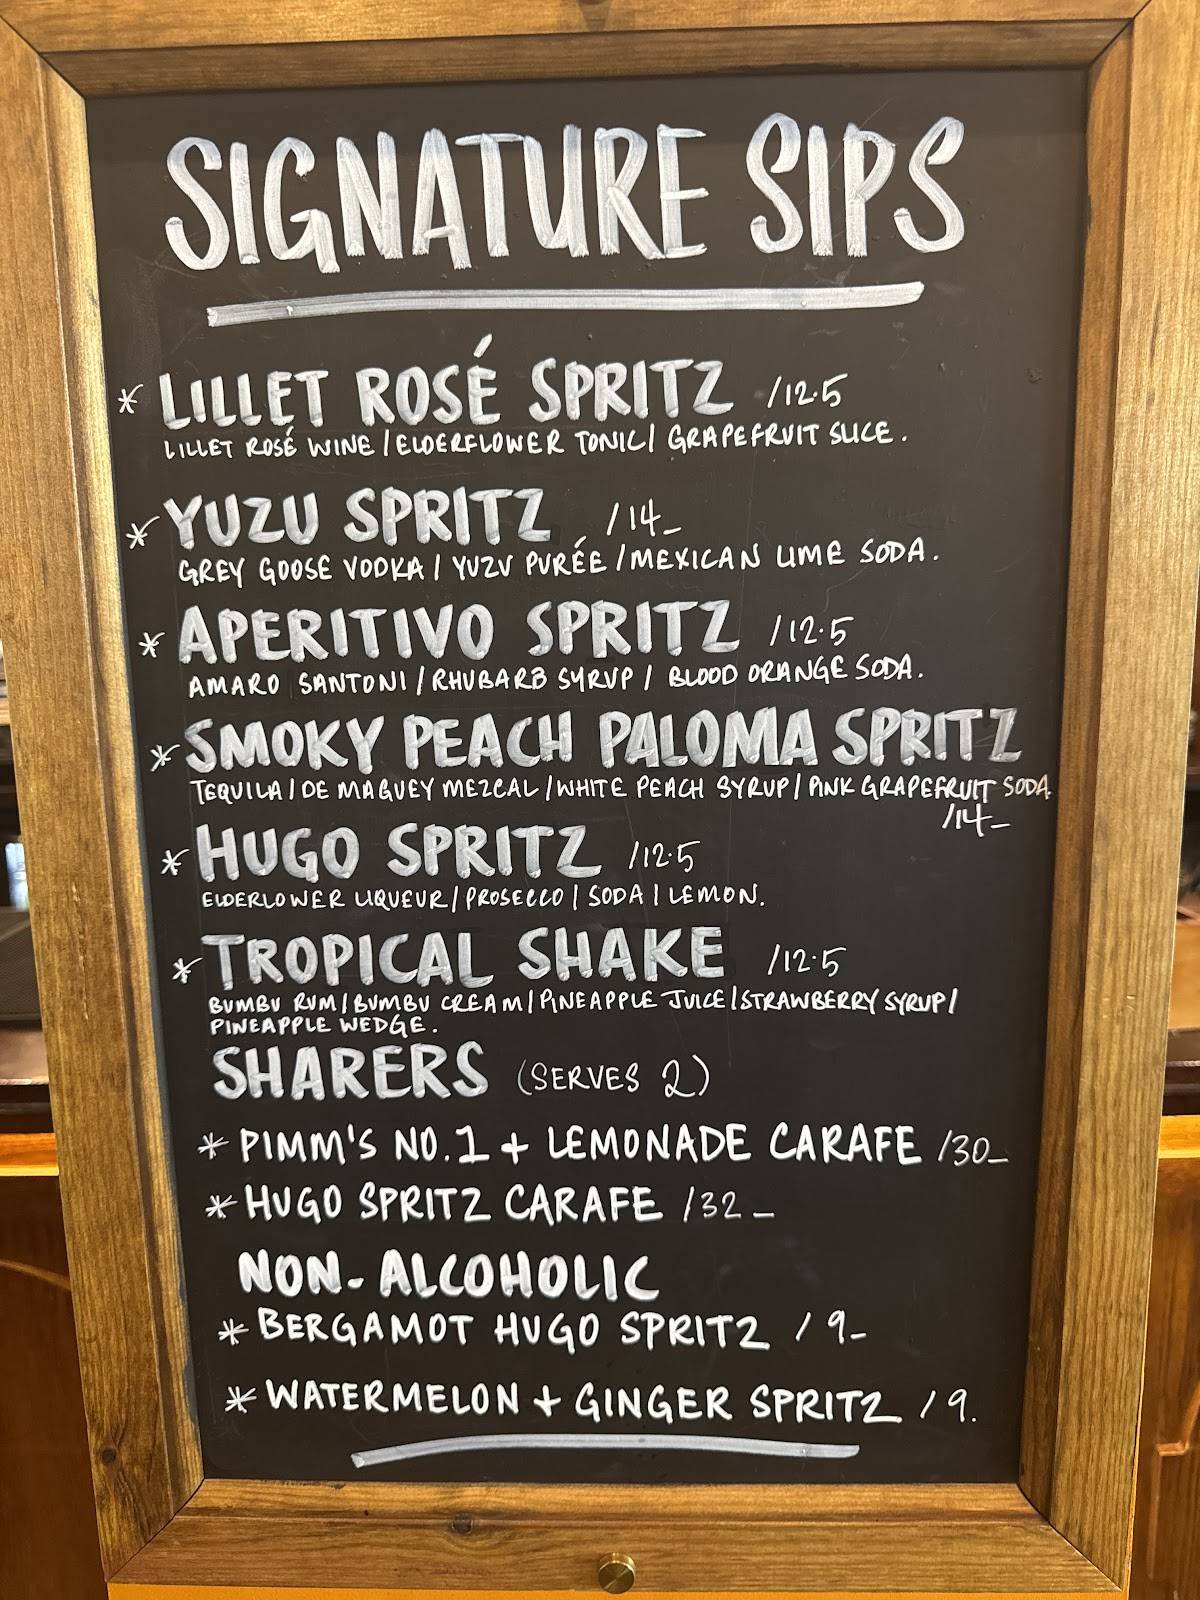 SIGNATURE SIPS
* LILLET ROSÉ SPRITZ /12.5
LILLET ROSÉ WINE / ELDERFLOWER TONIC / GRAPEFRUIT SLICE.
* YUZU SPRITZ /14_
GREY GOOSE VODKA / YUZU PURÉE / MEXICAN LIME SODA.
* APERITIVO SPRITZ /12.5
AMARO SANTONI / RHUBARB SYRUP / BLOOD ORANGE SODA.
* SMOKY PEACH PALOMA SPRITZ
TEQUILA / DE MAGUEY MEZCAL / WHITE PEACH SYRUP / PINK GRAPEFRUIT SODA.
/14_
* HUGO SPRITZ /12.5
ELDERLOWER LIQUEUR / PROSECCO / SODA / LEMON.
* TROPICAL SHAKE /12.5
BUMBU RUM / BUMBU CREAM / PINEAPPLE JUICE / STRAWBERRY SYRUP /
PINEAPPLE WEDGE.
SHARERS (SERVES 2)
* PIMM'S NO.1 + LEMONADE CARAFE /30_
* HUGO SPRITZ CARAFE /32_
NON-ALCOHOLIC
* BERGAMOT HUGO SPRITZ /9_
* WATERMELON + GINGER SPRITZ /9.